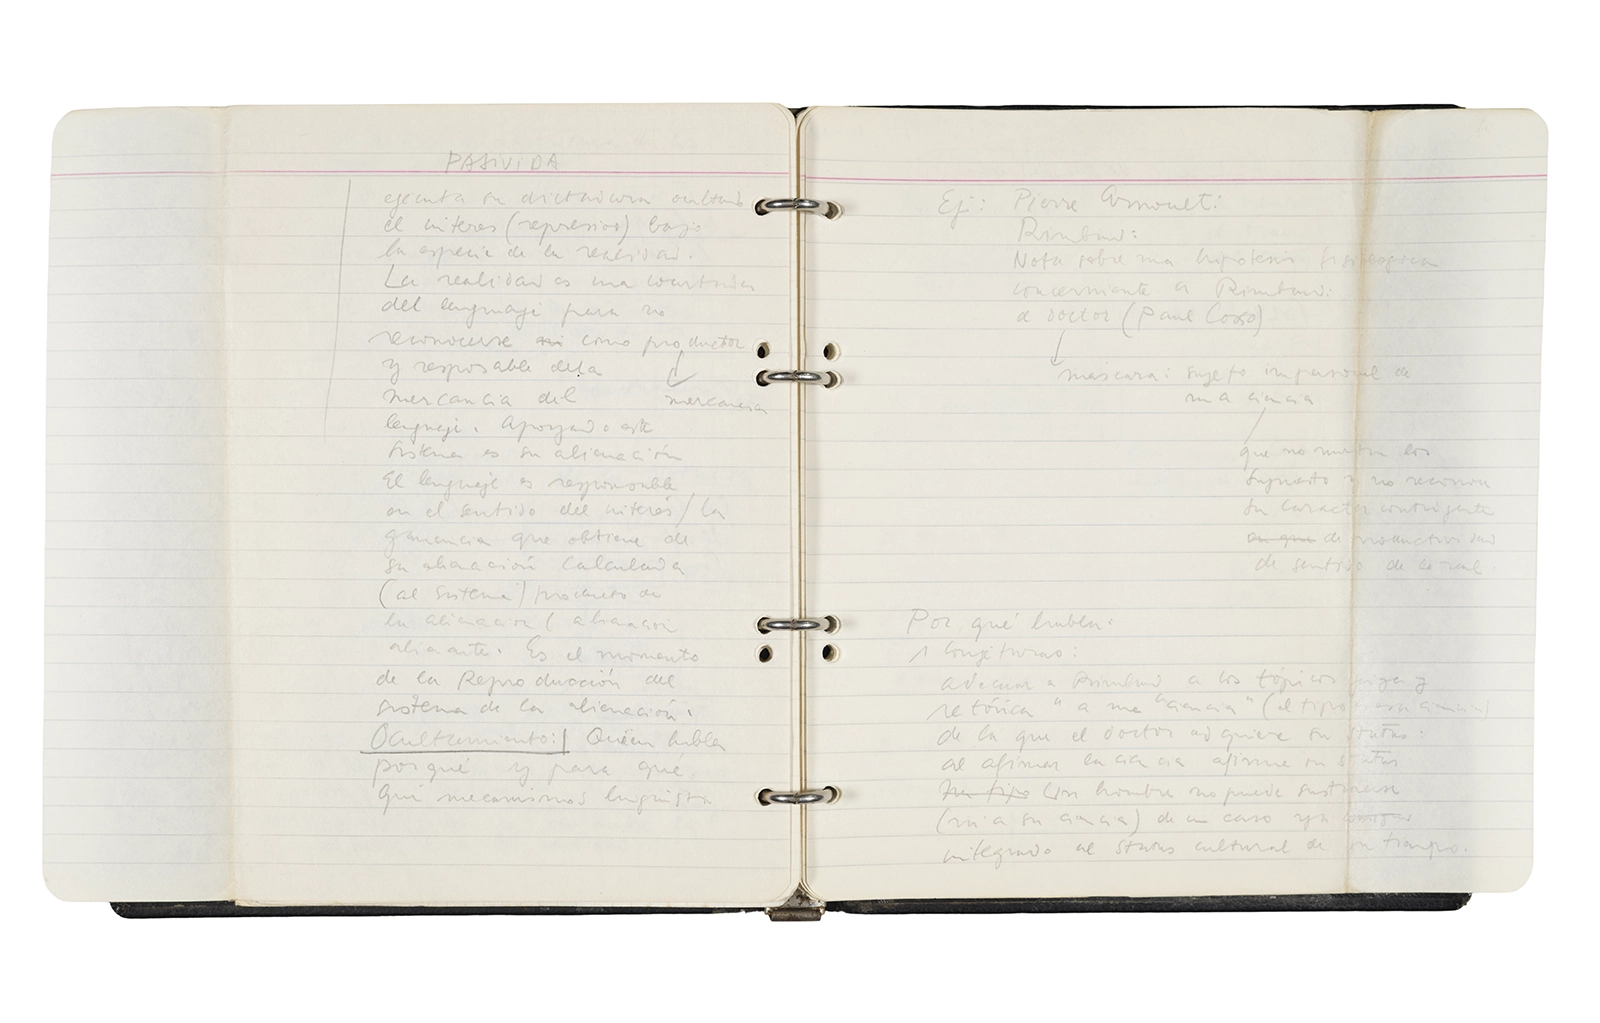 PASIVIDA
ejecuta su dictadura ocultando
el interes (represion) bajo
la especie de la realidad.
La realidad es una
del lenguaje para no
reconocerse como productor
y resposable dela
mercancia del mercancia
lenguaje. Apoyando este
sistema es su alienación
El lenguaje es responsable
en el sentido del interés / la
ganancia que obtiene de
su alienación calculada
(al sistema) producto de
la alienacion (alienacion
alienante. Es el momento
de la Reproducción del
sistema de la alienación.
Ocultamiento: Quién habla
porqué y para qué.
Qué mecanismos linguista
Ej: Pierre Arnoult:
Rimbaud:
Nota sobre una hipotesis fisiologica
concerniente a Rimbaud:
doctor (Paul
mascara: sujeto impersonal de
una ciencia
que no muestra los
supuesto y no reconoce
su caracter contingente
en que de productividad
de sentido de lo real.
Por qué habla:
1 Conjeturas:
adecuar a Rimbaud a los tópicos y
retórica " a una "ciencia" (al tipo esa ciencia)
de la que el doctor adquiere su status.
al afirmar la ciencia afirma su status
Un tipo Con hombre no puede sustraerse
(ni a su ciencia) de un caso ya
integrado al status cultural de su tiempo.